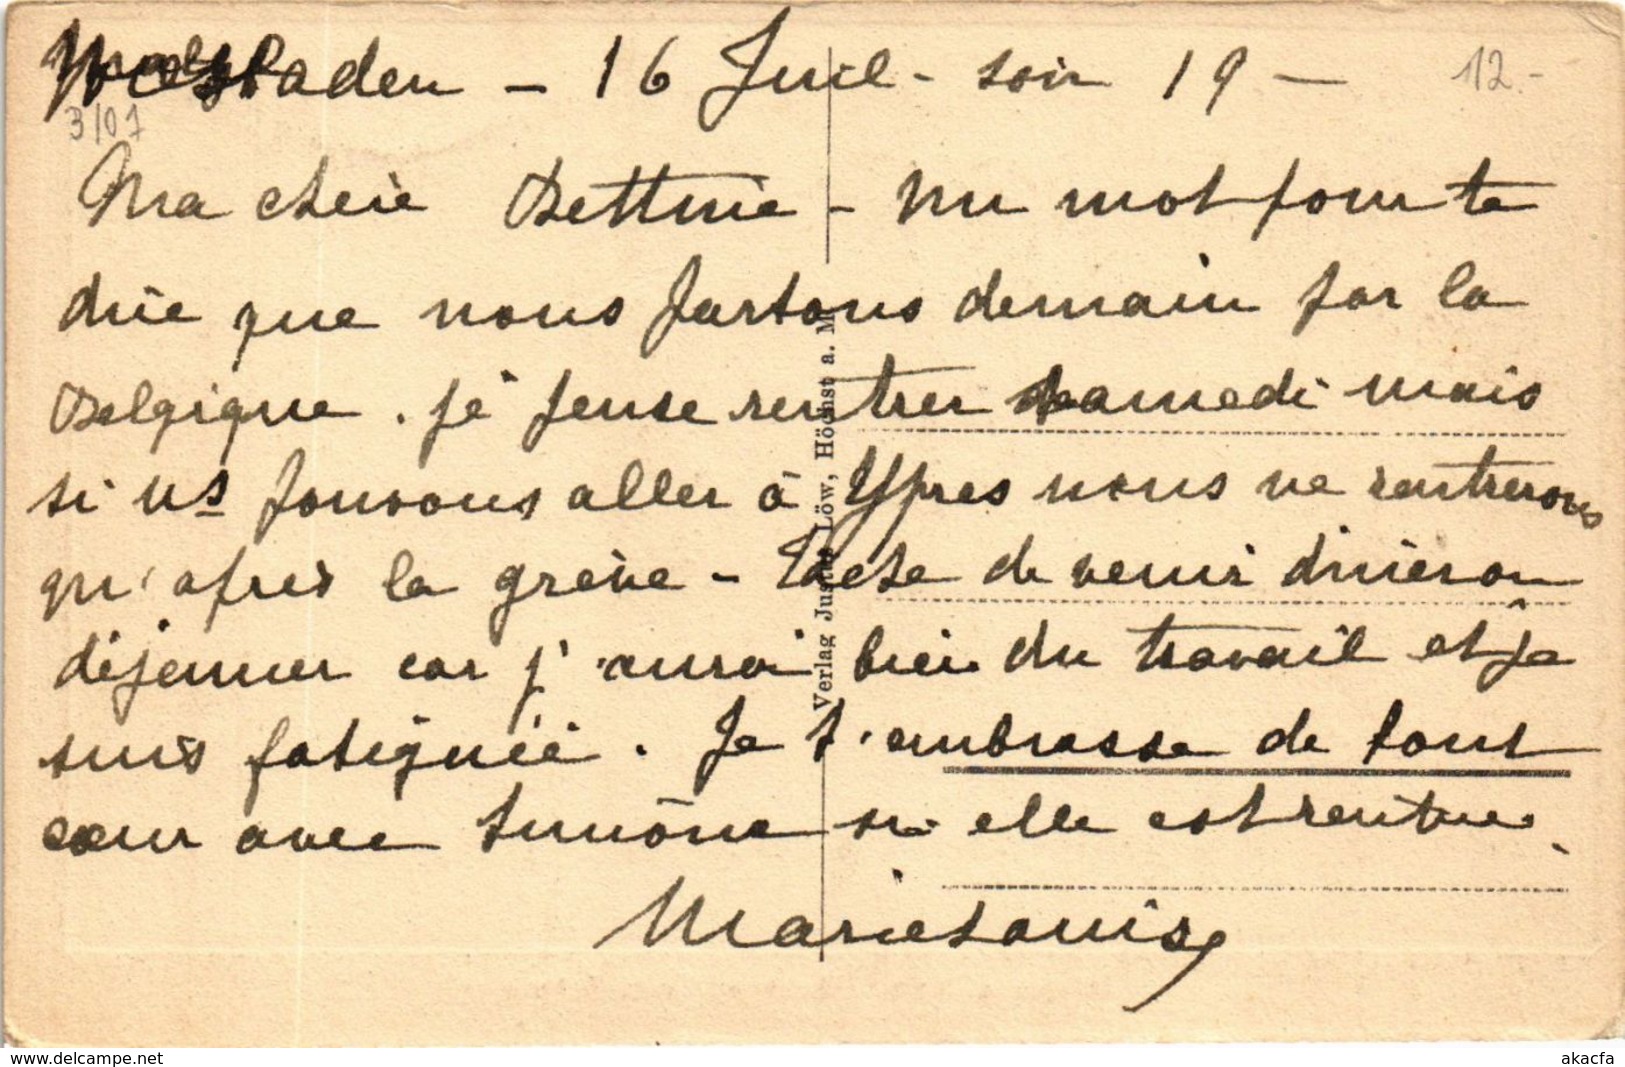 Wiesbaden - 16 Juil - soir 19 -
12.-
3/07
Ma chérie Bettine - un mot pour te
dire que nous partons demain par la
Belgique. je pense rentrer samedi mais
si ns pouvons aller à Ypres nous ne rentrerons
qu'après la grève - tache de venir dîner ou
déjeuner car j'aurai bien du travail et je
suis fatiguée. Je t'embrasse de tout
cœur avec Simône si elle est rentrée.
Marie Louise
Verlag Justus Löw, Höchst a. M.
www.delcampe.net
akacfa